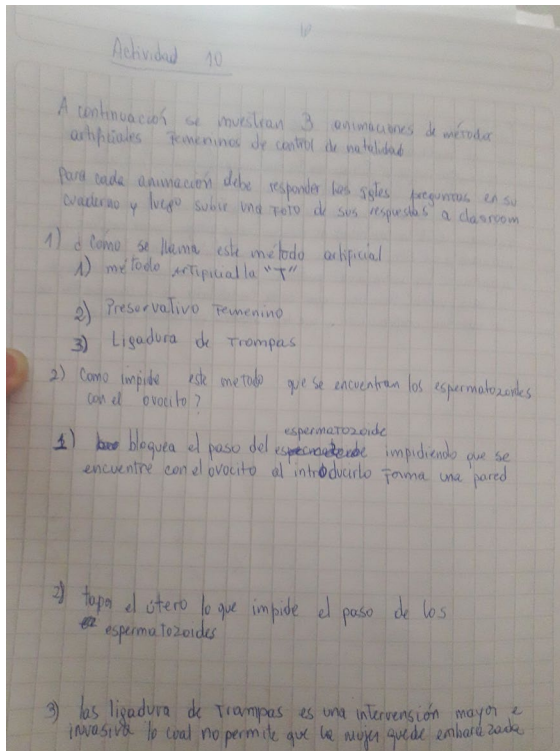 Actividad 10
A continuación se muestran 3 animaciones de métodos
artificiales Femeninos de control de natalidad
Para cada animación debe responder las sgtes preguntas en su
cuaderno y luego subir una FOTO de sus respuestas a clasroom
1) ¿Como se llama este metodo artificial
1) método artificial la "T"
2) Preservativo Femenino
3) Ligadura de Trompas
2) Como impide este metodo que se encuentran los espermatozoides
con el ovocito?
espermatozoide
1) bloquea el paso del impidiendo que se
encuentre con el ovocito al introducirlo forma una pared
2) tapa el útero lo que impide el paso de los
espermatozoides
3) las ligadura de Trampas es una intervención mayor e
invasiva lo cual no permite que la mujer quede embarazada